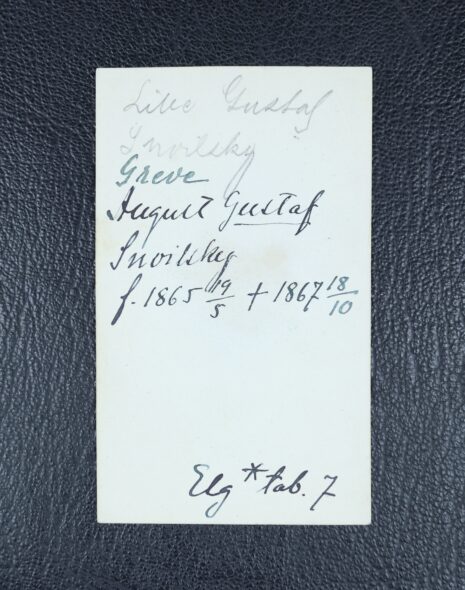 Lille Gustaf
Snoilsky
Greve
August Gustaf
Snoilsky
f. 1865 19/5 + 1867 18/10
Elg * tab. 7